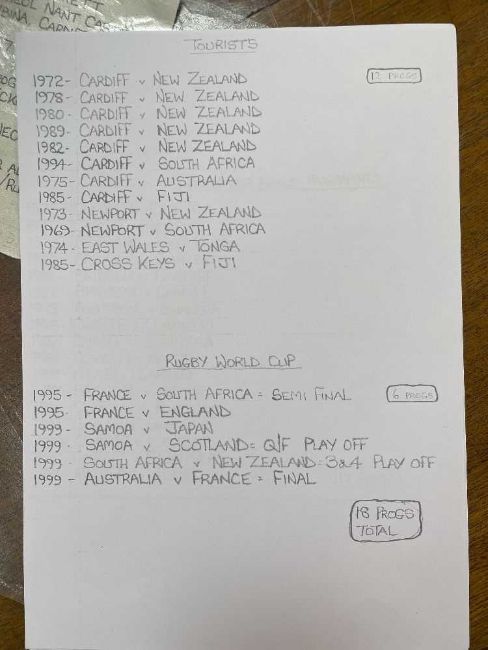 TOURISTS
1972- CARDIFF v NEW ZEALAND
12 PROGS
1978- CARDIFF v NEW ZEALAND
1980- CARDIFF v NEW ZEALAND
1989- CARDIFF v NEW ZEALAND
1982- CARDIFF v NEW ZEALAND
1994- CARDIFF v SOUTH AFRICA
1975- CARDIFF v AUSTRALIA
1985- CARDIFF v FIJI
1973- NEWPORT v NEW ZEALAND
1969- NEWPORT v SOUTH AFRICA
1974- EAST WALES v TONGA
1985- CROSS KEYS v FIJI
RUGBY WORLD CUP
1995- FRANCE v SOUTH AFRICA = SEMI FINAL
6 PROGS
1995- FRANCE v ENGLAND
1999- SAMOA v JAPAN
1999- SAMOA v SCOTLAND= Q/F PLAY OFF
1999- SOUTH AFRICA v NEW ZEALAND=3&4 PLAY OFF
1999- AUSTRALIA v FRANCE = FINAL
18 PROGS
TOTAL